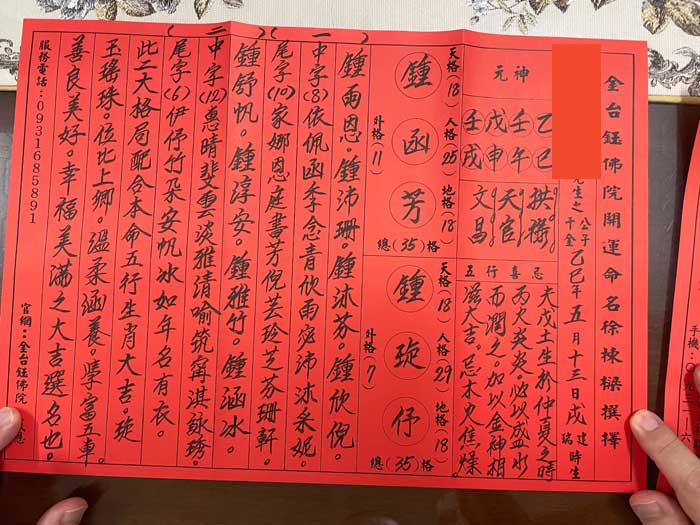 金台鈺佛院開運命名徐棟樑撰擇
先生之
公子
千金
乙巳年五月十三日戌時生
建
瑞
元神
乙巳
壬午
戊申
壬戌
天官
文昌
五行喜忌
夫戊土生於仲夏之時
丙火炎炎必以盛水
而潤之。加以金神相
滋大吉。忌木火焦燥。
天格(18) 人格(25) 地格(18)
鍾函芳
外格(11)
總(35)格
天格(18) 人格(29) 地格(18)
鍾琁伃
外格(7)
總(35)格
(一)
鍾雨恩。鍾沛珊。鍾沐芬。鍾欣倪。
中字(8)依佩函季念青欣雨宓沛沐承妮。
尾字(10)家娜恩庭書芳倪芸玲芝芬珊軒。
(二)
鍾舒帆。鍾淳安。鍾雅竹。鍾涵冰。
中字(12)惠晴斐雲淡雅清喻筑甯淇詠琇。
尾字(6)伊伃竹朶安帆冰如年名有衣。
此二大格局配合本命五行生肖大吉。琁
玉瑤珠。位比上卿。溫柔涵養。學富五車。
善良美好。幸福美滿之大吉選名也。
服務電話：0931685891
官網：金台鈺佛院
手機：